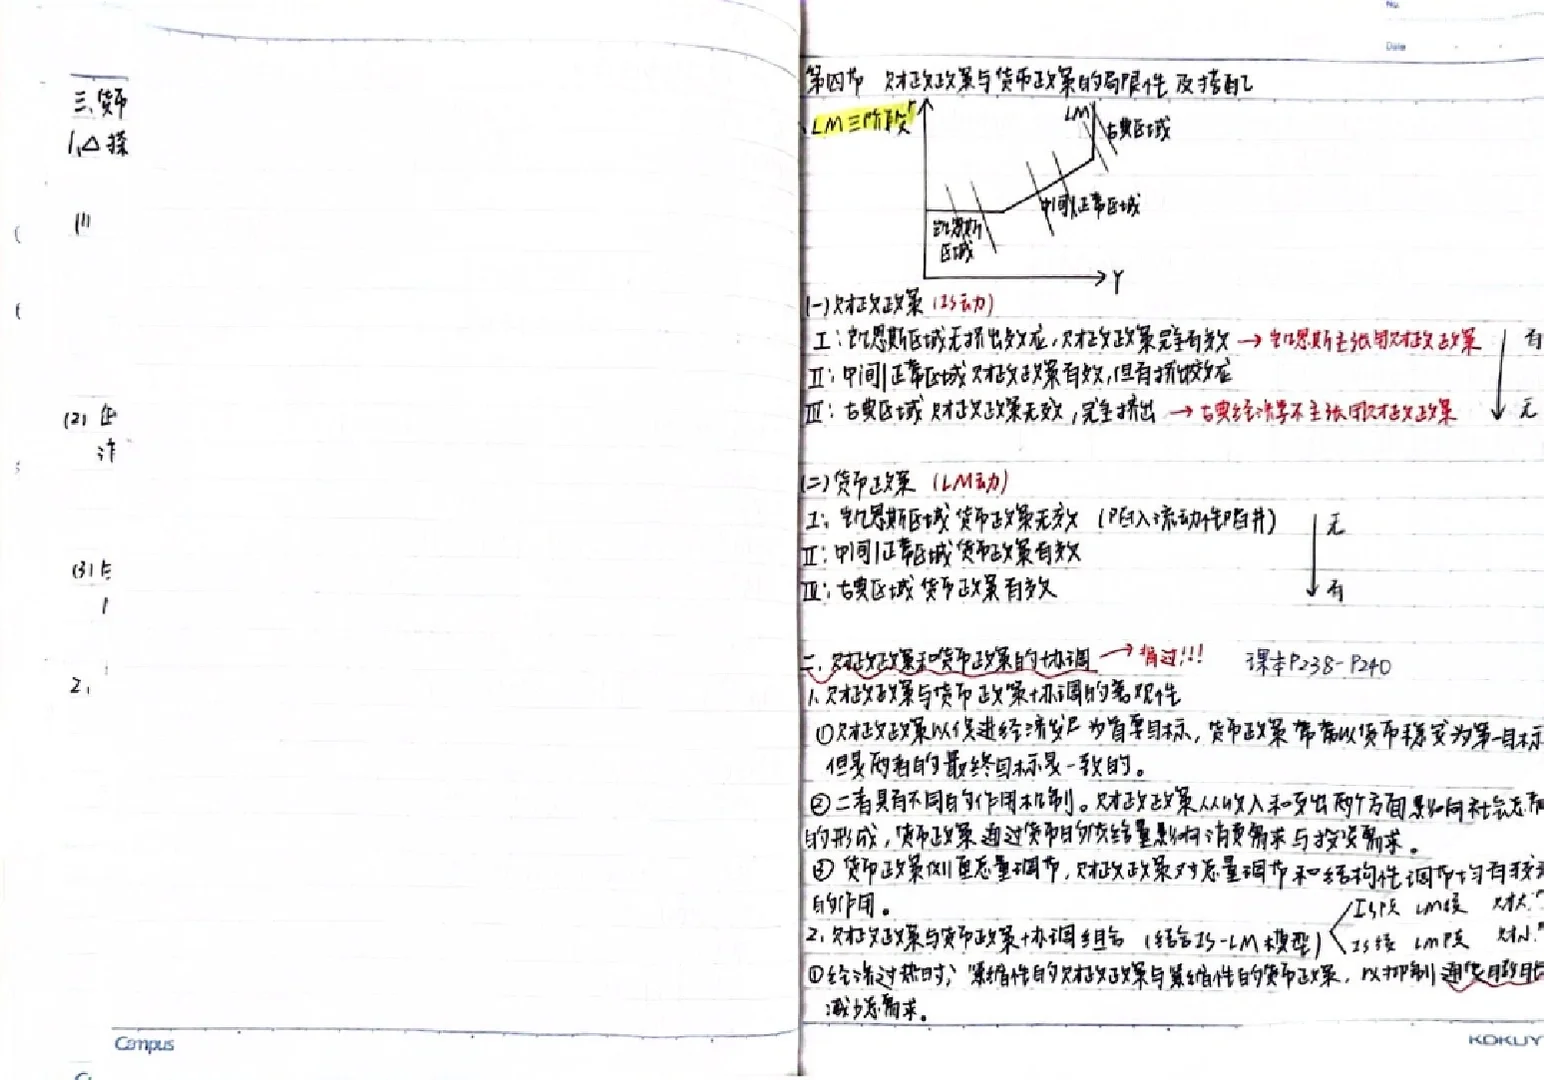 三、货币
1、△
(1)
(2)
(3)
2、
Campus
No.
Date
第四节 财政政策与货币政策的局限性及搭配
LM三阶段
r
LM
古典区域
中间|正常区域
凯恩斯
区域
Y
(一)财政政策 (IS动)
I:凯恩斯区域无挤出效应,财政政策完全有效 → 凯恩斯主张用财政政策 有
II:中间|正常区域财政政策有效,但有挤出效应
III:古典区域 财政政策无效,完全挤出 → 古典经济学不主张用财政政策 无
(二)货币政策 (LM动)
I:凯恩斯区域 货币政策无效 (陷入流动性陷井) 无
II:中间|正常区域 货币政策有效
III:古典区域 货币政策有效 有
二、财政政策和货币政策的协调 → 搞过!!! 课本P238-P240
1、财政政策与货币政策协调的客观性
①财政政策以促进经济发展为首要目标,货币政策常常以货币稳定为第一目标
但是两者的最终目标是一致的。
②二者具有不同的作用机制。财政政策从收入和支出两个方面影响社会总需
的形成,货币政策通过货币的供给量影响消费需求与投资需求。
③货币政策侧重总量调节,财政政策对总量调节和结构性调节均有较
的作用。
IS陡 LM缓 财大
2、财政政策与货币政策协调组合 (结合IS-LM模型)
IS缓 LM陡 财小
①经济过热时,紧缩性的财政政策与紧缩性的货币政策,以抑制通货膨胀
减少总需求。
KOKUY